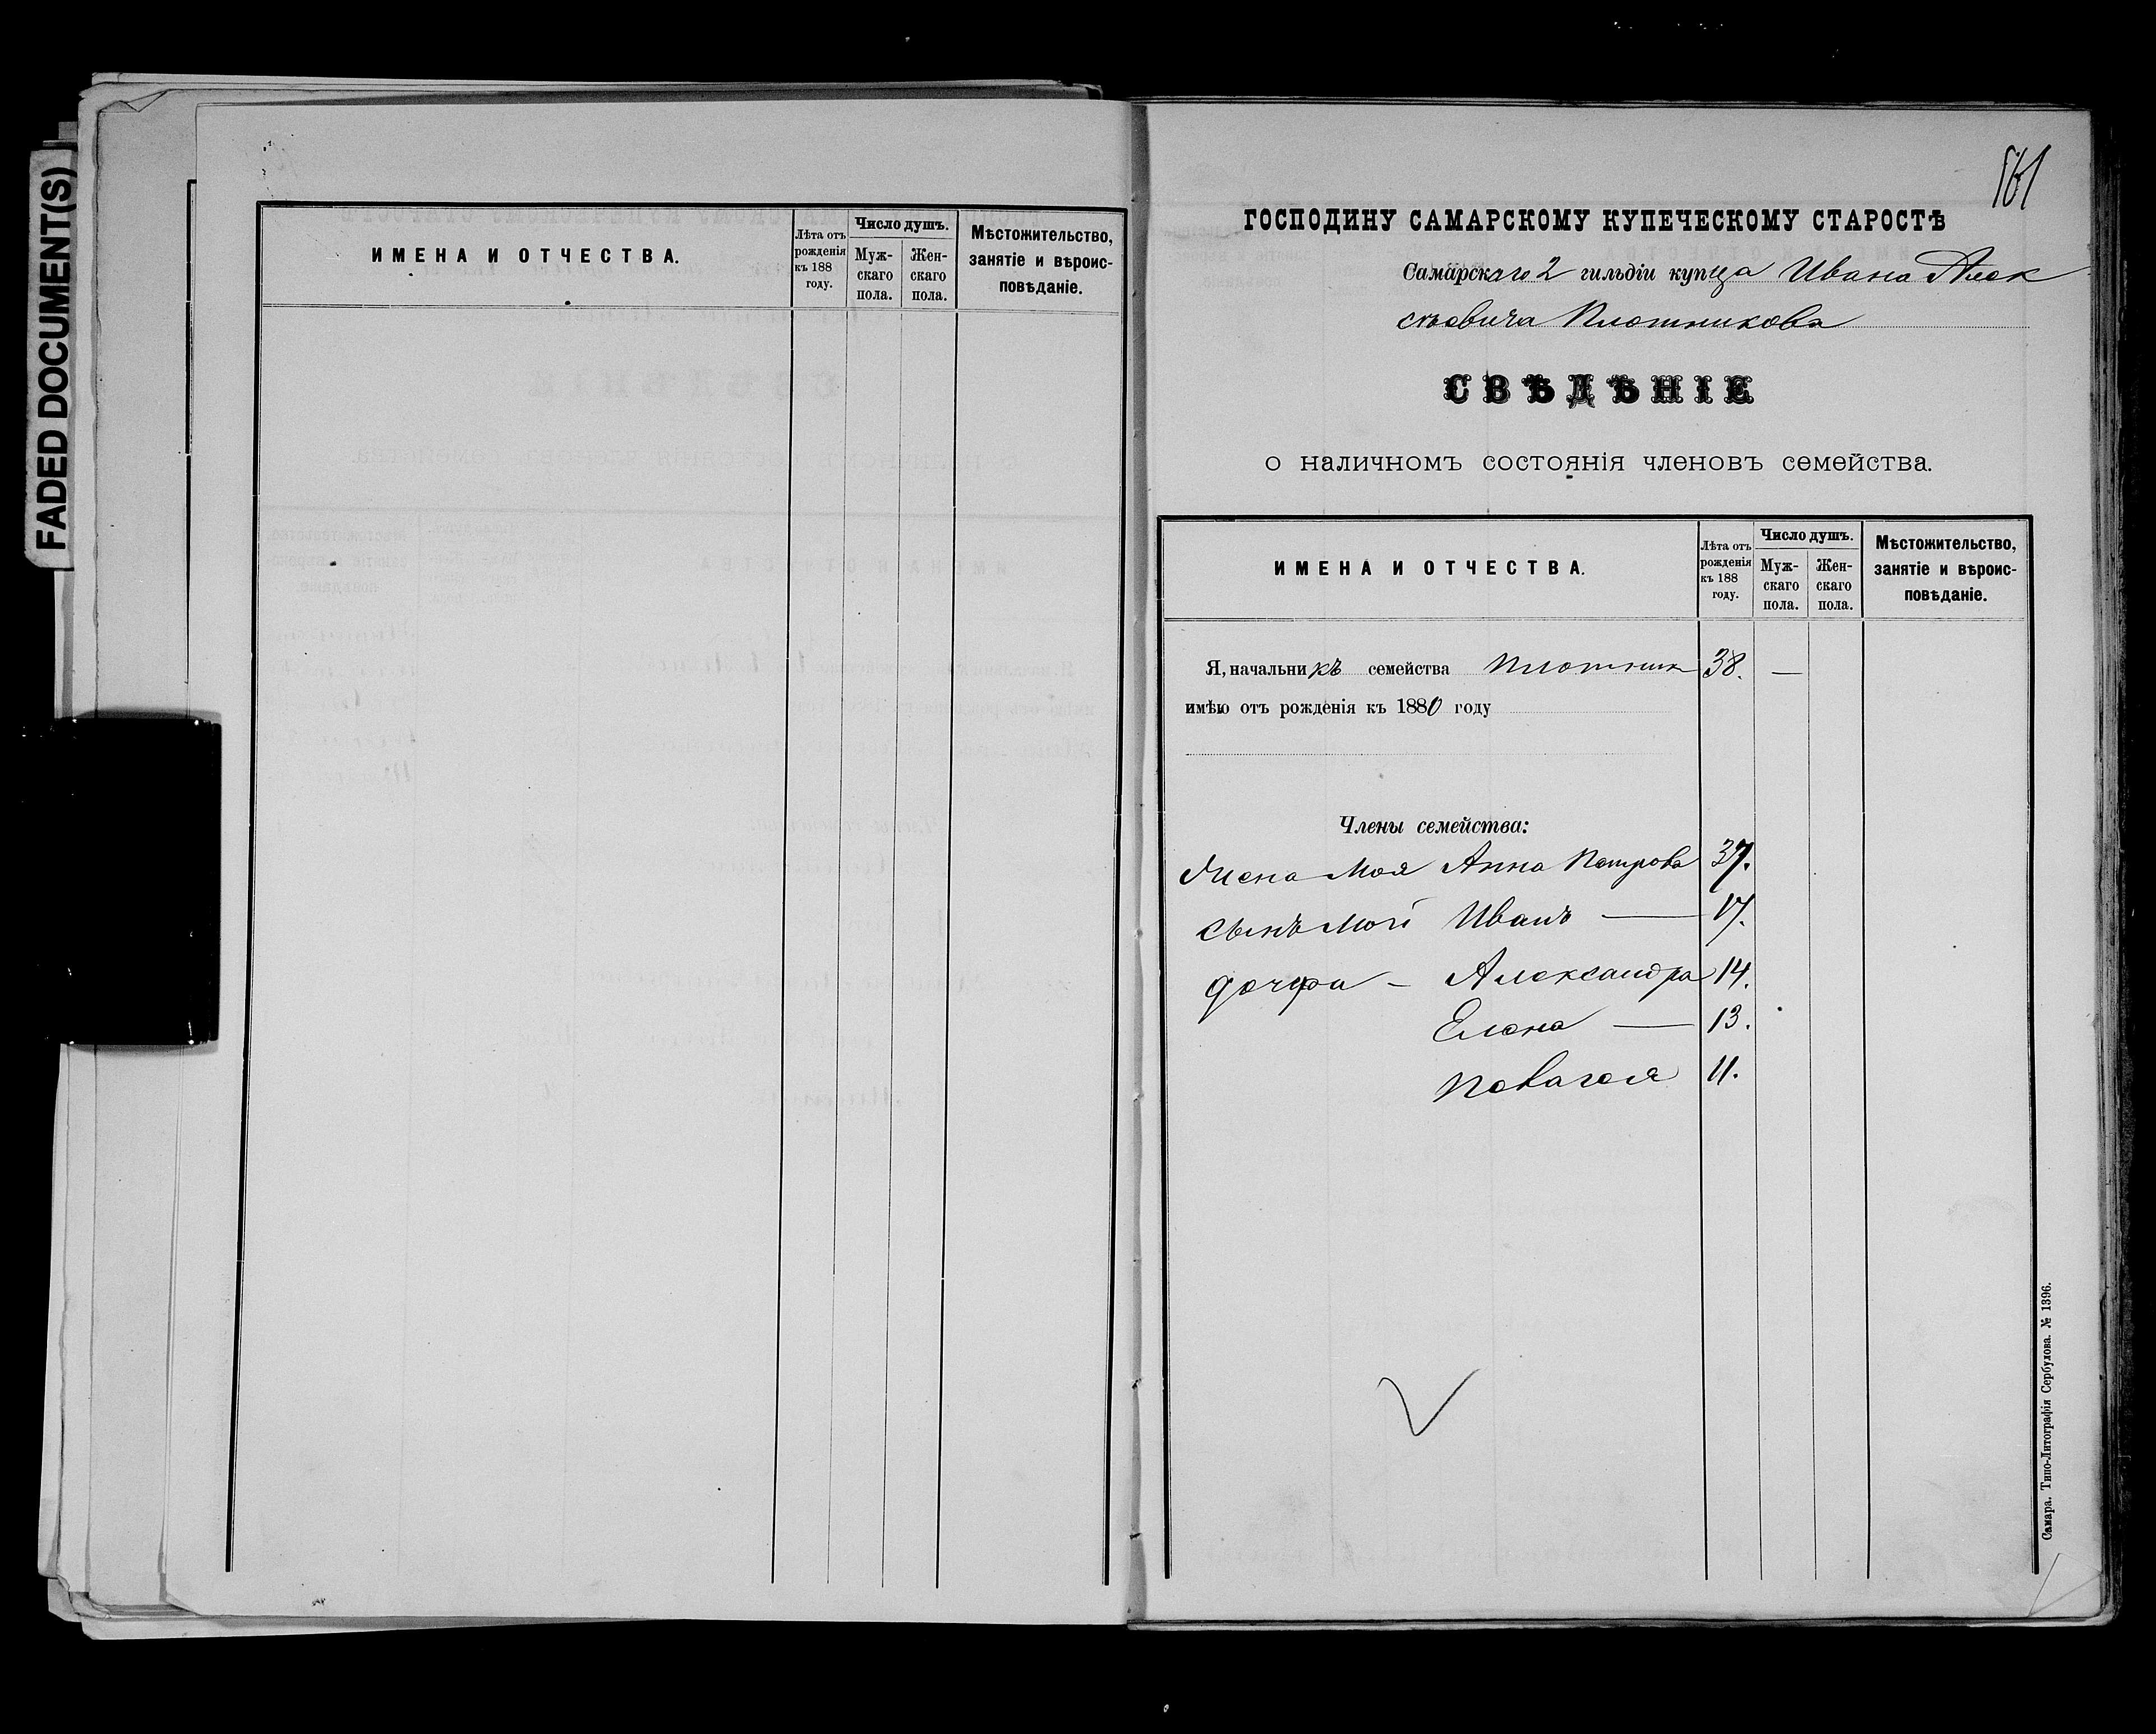 FADED DOCUMENT(S)
ИМЕНА И ОТЧЕСТВА.
Лѣта отъ
рожденія
къ 188
году.
Число душъ.
Муж-
скаго
пола.
Жен-
скаго
пола.
Мѣстожительство,
занятіе и вѣроис-
повѣданіе.
161
ГОСПОДИНУ САМАРСКОМУ КУПЕЧЕСКОМУ СТАРОСТѢ
Самарскаго 2 гильдіи купца Ивана Алек
сѣевича Плотникова
СВѢДѢНІЕ
о наличномъ состоянія членовъ семейства.
ИМЕНА И ОТЧЕСТВА.
Лѣта отъ
рожденія
къ 188
году.
Число душъ.
Муж-
скаго
пола.
Жен-
скаго
пола.
Мѣстожительство,
занятіе и вѣроис-
повѣданіе.
Я, начальникъ семейства Плотник 38. —
имѣю отъ рожденія къ 1880 году
Члены семейства:
Жена Моя Анна Петрова 37.
сынъ Мой Иванъ — 17.
дочери - Александра 14.
Елена — 13.
Пелагея 11.
Самара. Типо-Литографія Сербулова. № 1396.